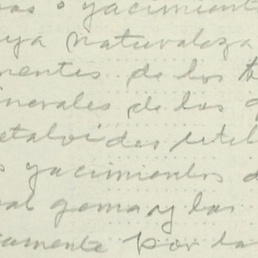 o yacimient
uya naturaleza
mentes de los
inerales de las
etaloides
s yacimientos d
gema y las
camente por la